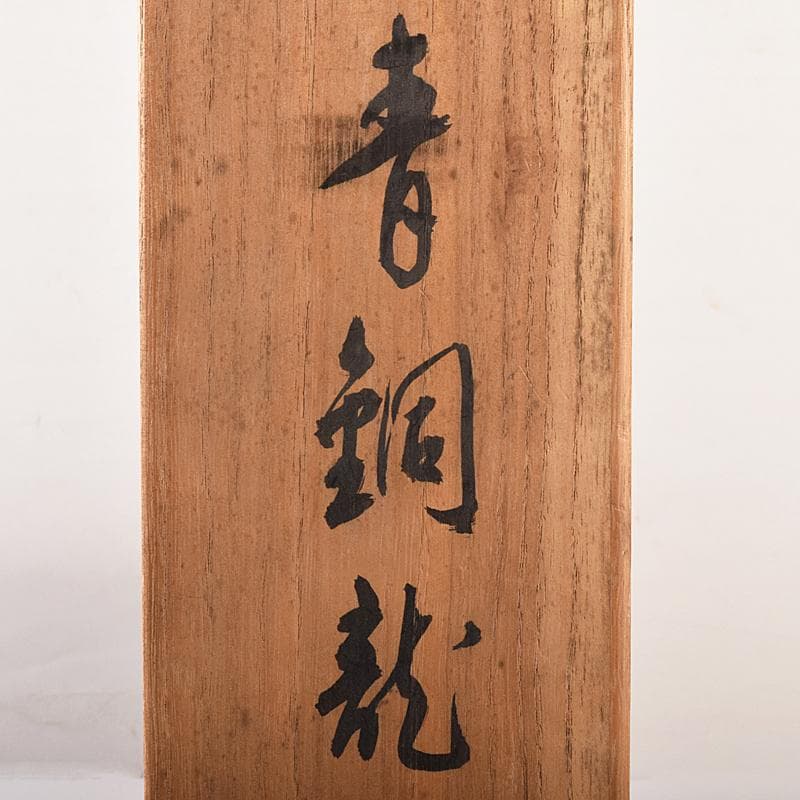 青銅龍